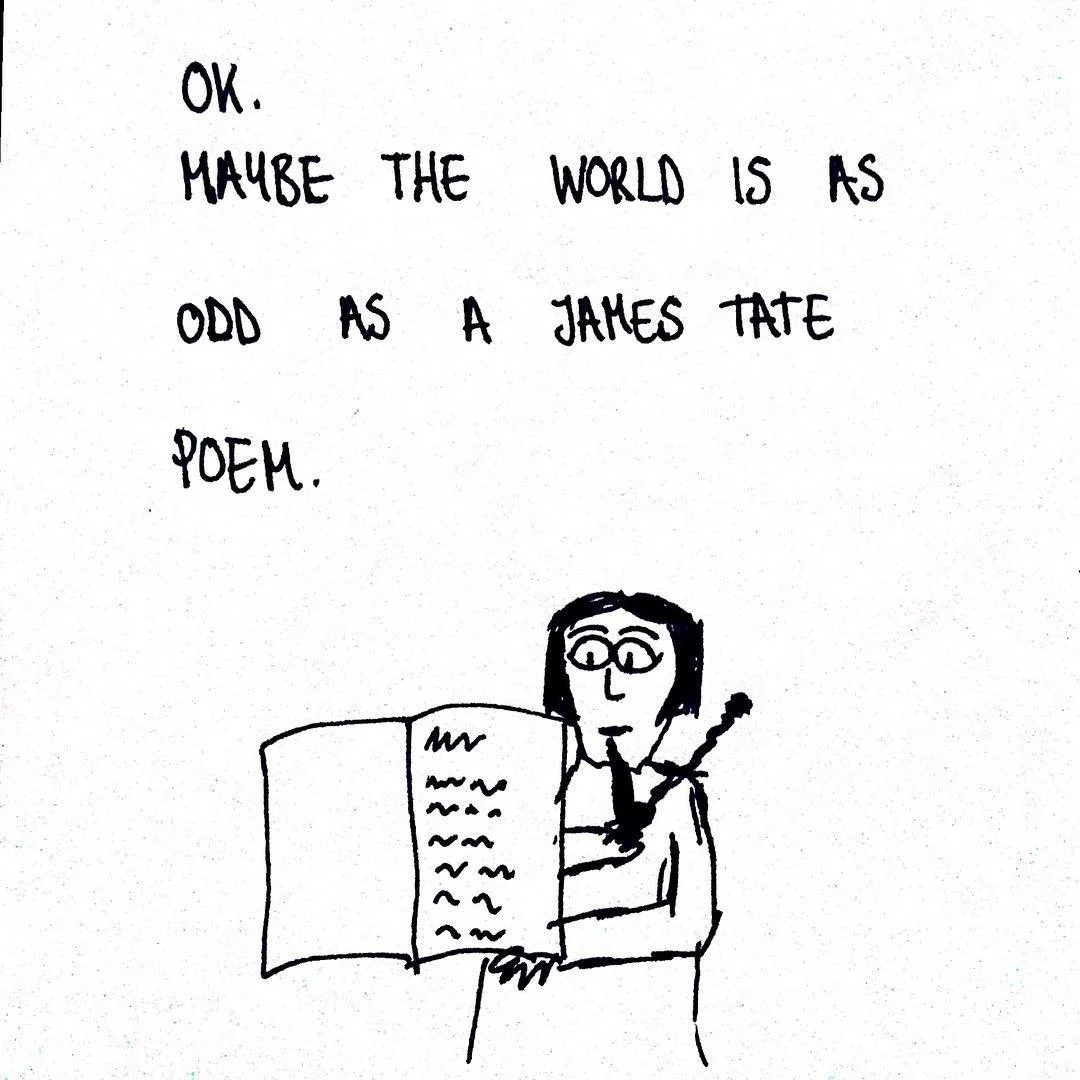 OK.
MAYBE THE WORLD IS AS
ODD AS A JAMES TATE
POEM.